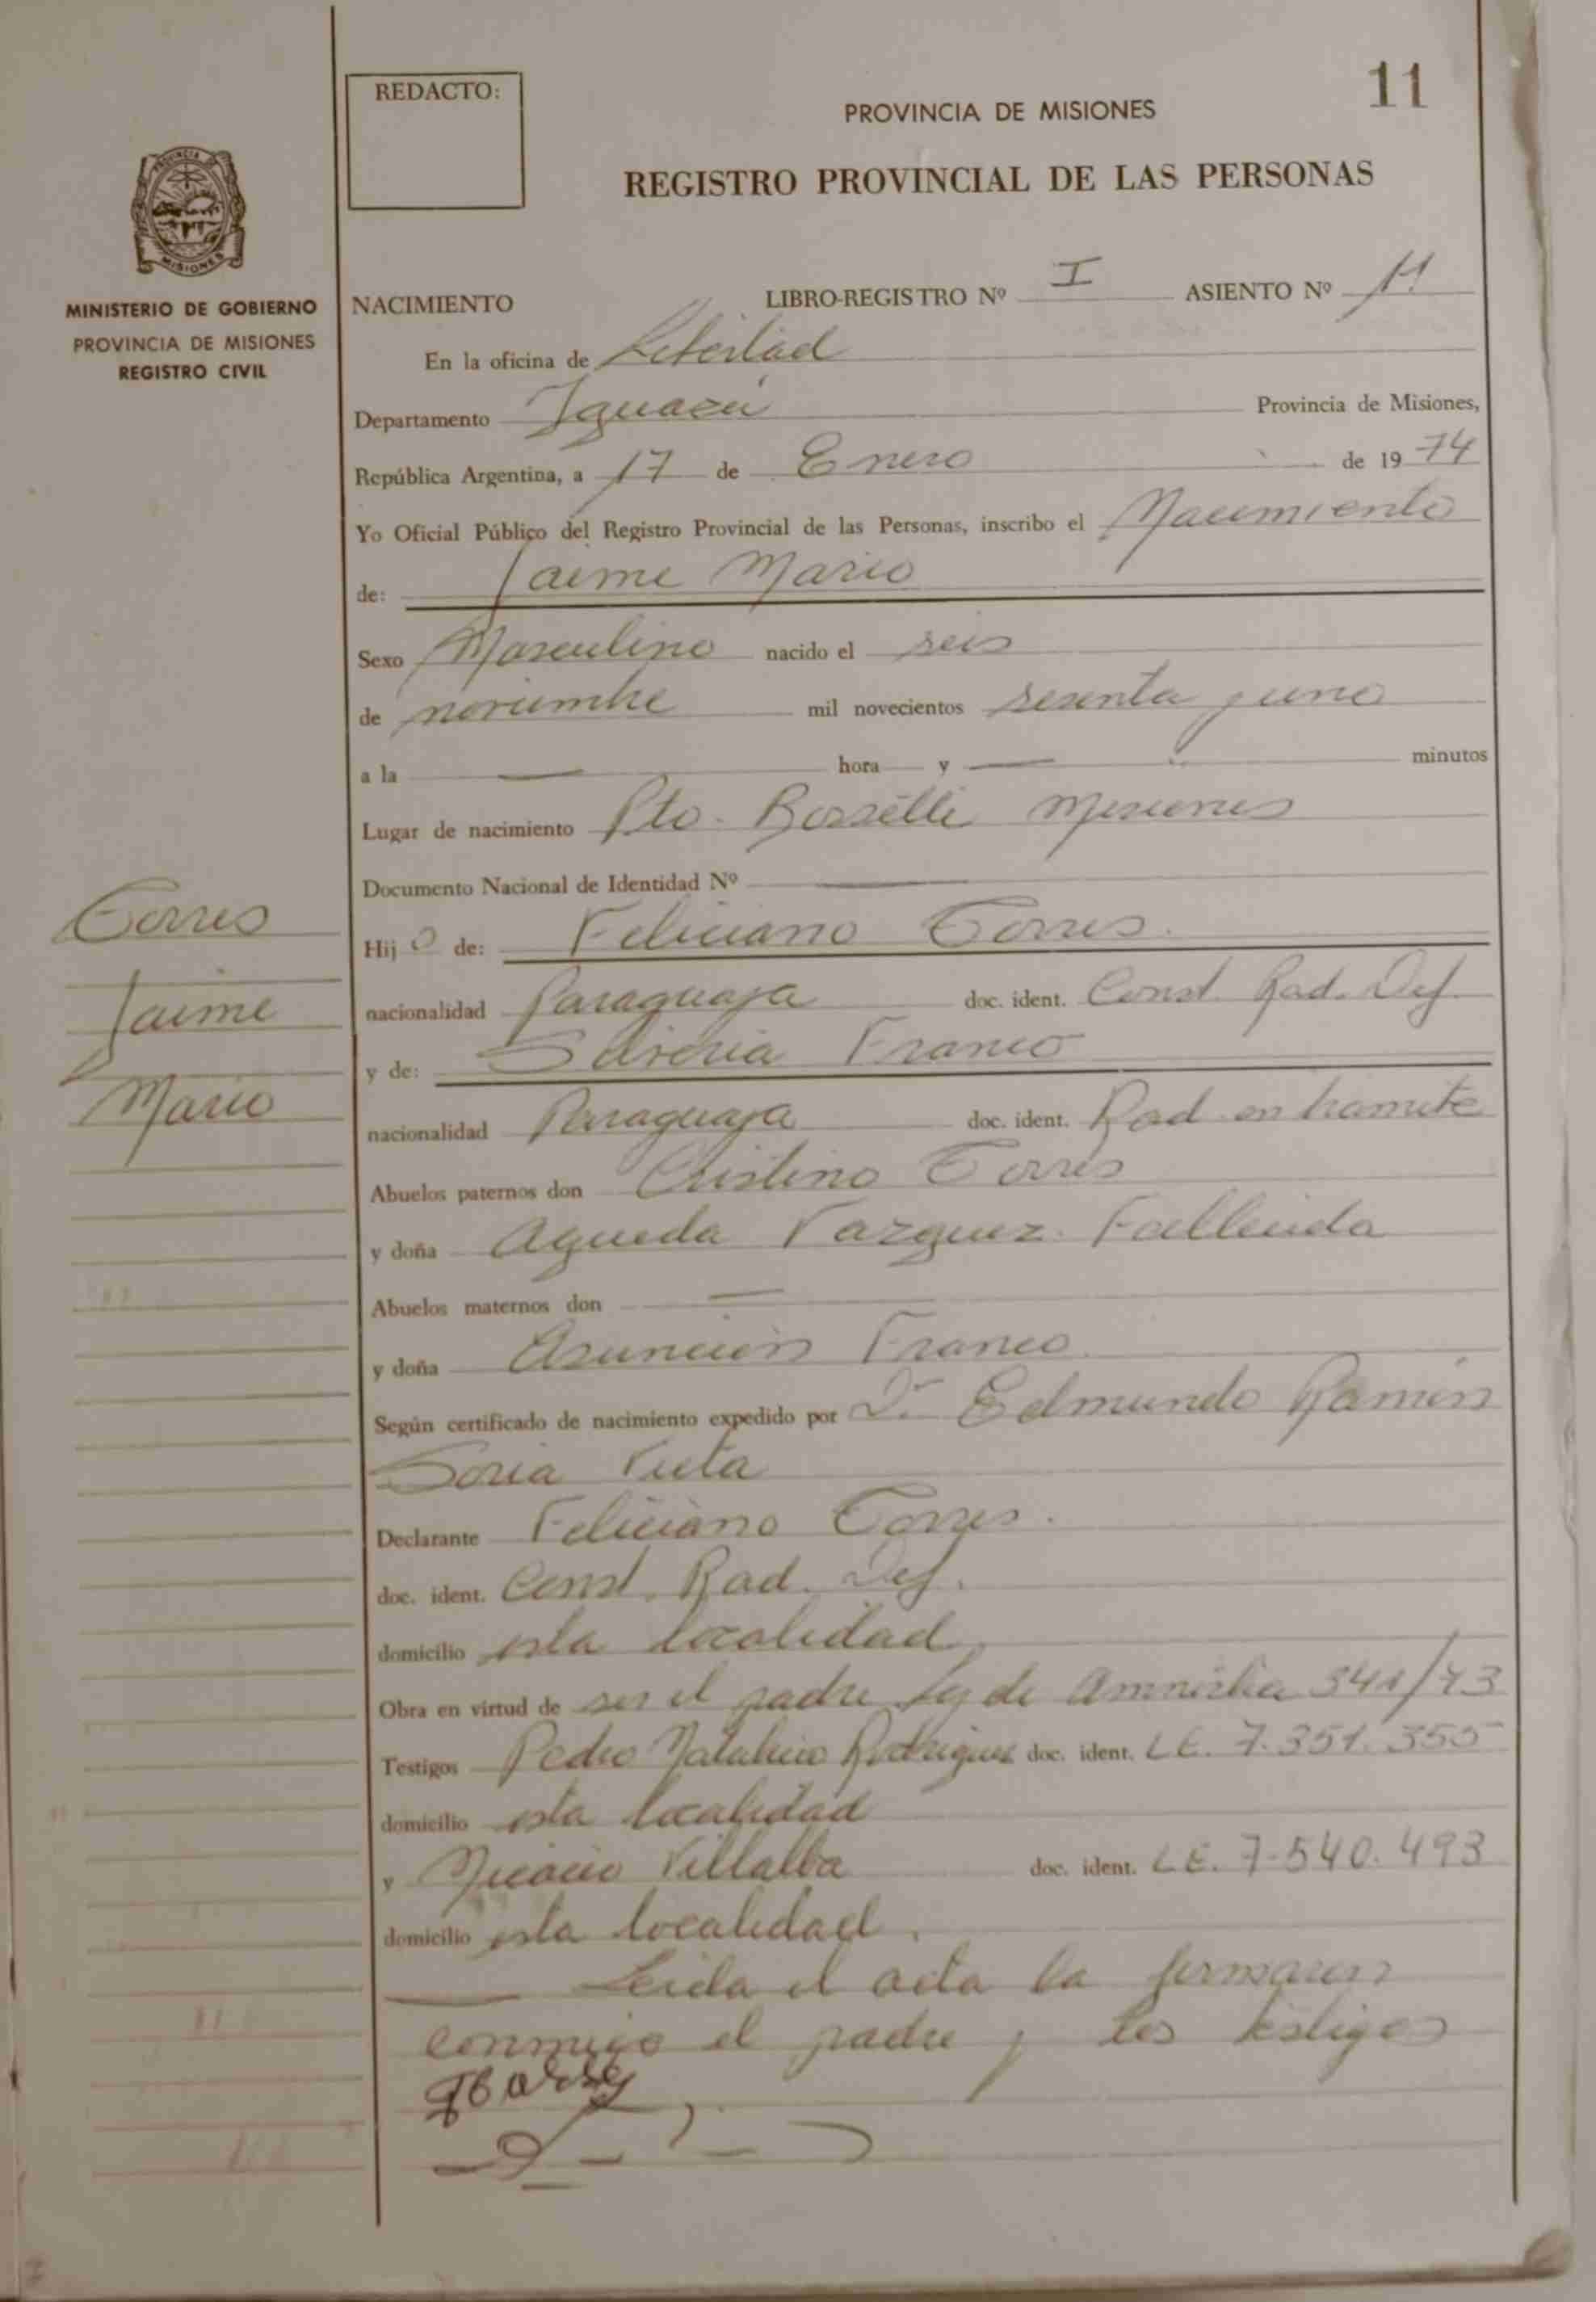 REDACTO:
11
PROVINCIA DE MISIONES
REGISTRO PROVINCIAL DE LAS PERSONAS
MISIONES
MINISTERIO DE GOBIERNO
PROVINCIA DE MISIONES
REGISTRO CIVIL
NACIMIENTO LIBRO-REGISTRO Nº I ASIENTO Nº 11
En la oficina de Libertad
Departamento Iguazú Provincia de Misiones,
República Argentina, a 17 de Enero de 1974
Yo Oficial Público del Registro Provincial de las Personas, inscribo el Nacimiento
de: Jaime Mario
Sexo Masculino nacido el seis
de noviembre mil novecientos sesenta y uno
a la — hora y — minutos
Lugar de nacimiento Pto. Misiones
Documento Nacional de Identidad Nº —
Torres
Jaime
Mario
Hijo de: Feliciano Torres.
nacionalidad Paraguaya doc. ident. Const. Rad. Def.
y de: Franco
nacionalidad Paraguaya doc. ident. Rad en tramite
Abuelos paternos don Cristino Torres
y doña Agueda Vazquez. Fallecida
Abuelos maternos don —
y doña Asunción Franco
Según certificado de nacimiento expedido por Dr. Edmundo Ramón
Soria Vieta
Declarante Feliciano Torres.
doc. ident. Const. Rad. Def.
domicilio esta localidad
Obra en virtud de ser el padre Ley de Amnistia 341/73
Testigos Pedro Rodriguez doc. ident. L.E. 7.351.355
domicilio esta localidad
y Villalba doc. ident. L.E. 7.540.493
domicilio esta localidad.
— Leida el acta la firmaron
conmigo el padre y los testigos